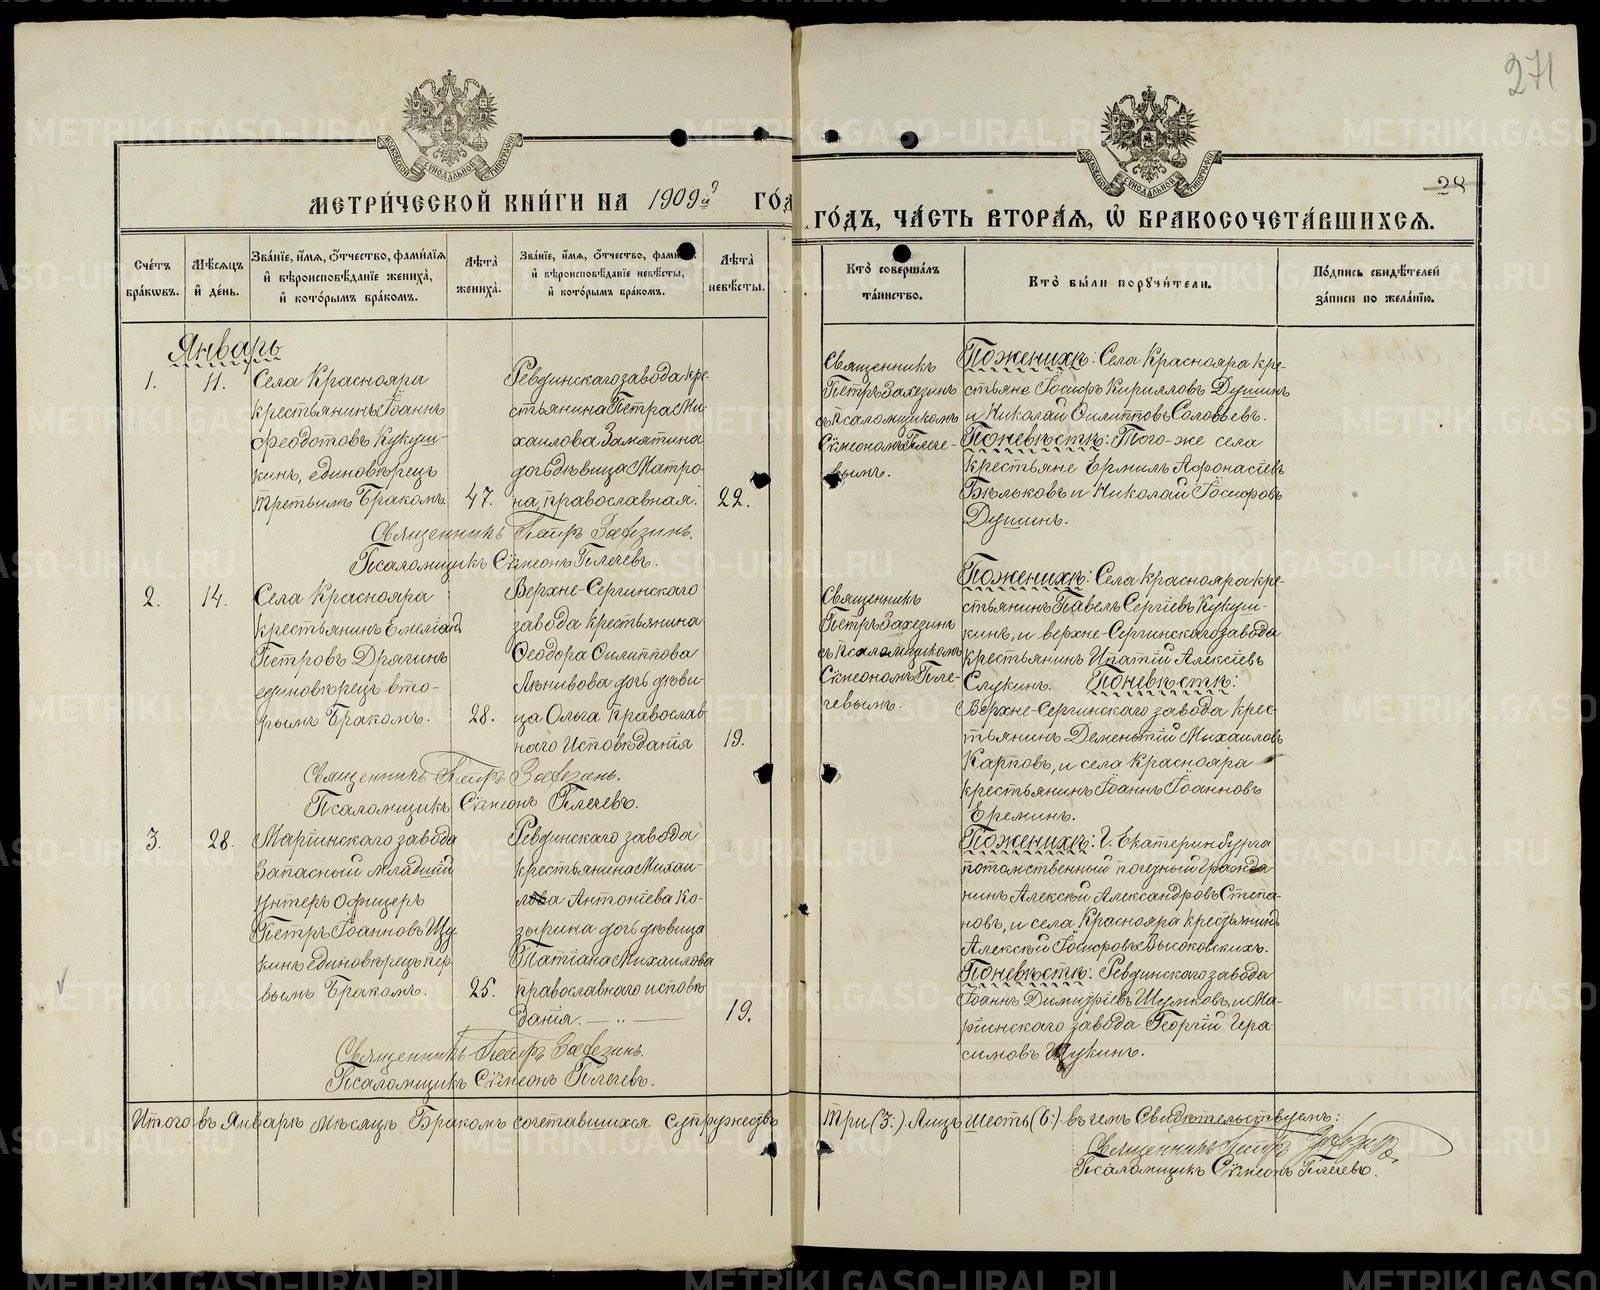 271
28
МЕТРИ́ЧЕСКОЙ КНИ́ГИ НА 1909й ГО́Д
ГО́ДЪ, ЧА́СТЬ ВТОРА́Я, Ѡ БРАКОСОЧЕТА́ВШИХСЯ.
Сче́тъ бра́кѡвъ.
Мѣ́сяцъ и҆ де́нь.
Зва́нїе, и҆́мя, ѻ҆́тчество, фами́лїя
и҆ вѣроисповѣ́данїе жениха̀,
и҆ кото́рымъ бра́комъ.
Лѣ́та жениха̀.
Зва́нїе, и҆́мя, ѻ҆́тчество, фами́лїя
и҆ вѣроисповѣ́данїе невѣ́сты,
и҆ кото́рымъ бра́комъ.
Лѣ́та невѣ́сты.
Кто̀ соверша́лъ
та́инство.
Кто̀ бы́ли порꙋчи́тели.
По́дпись свидѣ́телей
за́писи по жела́нїю.
Январь
1.
11.
Села Краснояра
крестьянинъ Іоаннъ
Ѳеодотовъ Кукуш-
кинъ, единовѣрецъ
третьимъ бракомъ.
47.
Ревдинскаго завода кре-
стьянина Петра Ми-
хаилова Замятина
дочь дѣвица Матро-
на, православная.
22.
Священникъ Петръ Захезинъ.
Псаломщикъ Сѵмеонъ Плечевъ.
Священникъ
Петръ Захезинъ
съ псаломщикомъ
Сѵмеономъ Плече-
вымъ.
По женихѣ: Села Краснояра кре-
стьяне Іосифъ Кирилловъ Душинъ
и Николай Филипповъ Соловьевъ.
По невѣстѣ: Того-же села
крестьяне Ермилъ Афонасіевъ
Бѣльковъ и Николай Іосифовъ
Душинъ.
2.
14.
Села Краснояра
крестьянинъ Емеліанъ
Петровъ Дрягинъ
единовѣрецъ вто-
рымъ бракомъ.
28.
Верхне-Сергинскаго
завода крестьянина
Ѳеодора Филиппова
Лѣнивова дочь дѣви-
ца Ольга православ
наго исповѣданія
19.
Священникъ Петръ Захезинъ.
Псаломщикъ Сѵмеонъ Плечевъ.
Священникъ
Петръ Захезинъ
съ псаломщикомъ
Сѵмеономъ Пле-
чевымъ.
По женихѣ: Села Краснояра кре-
стьянинъ Павелъ Сергіевъ Кукуш-
кинъ, и верхне-Сергинскаго завода
крестьянинъ Ипатій Алексіевъ
Слукинъ. По невѣстѣ:
Верхне-Сергинскаго завода крес-
тьянинъ Дементій Михаиловъ
Карповъ, и села Краснояра
крестьянинъ Іоаннъ Іоанновъ
Ереминъ.
3.
28.
Маріинскаго завода
запасный младшій
унтеръ офицеръ
Петръ Іоанновъ Щу
кинъ единовѣрецъ пер-
вымъ бракомъ.
25.
Ревдинскаго завода
крестьянина Михаи-
ла Антоніева Ко-
зырина дочь дѣвица
Татіана Михаилова
православнаго исповѣ
данія.
19.
Священникъ Петръ Захезинъ.
Псаломщикъ Сѵмеонъ Плечевъ.
По женихѣ: Г. Екатеринбурга
потомственный почетный гражда-
нинъ Алексѣй Александровъ Степа-
новъ, и села Краснояра крестьянинъ
Алексѣй Іосифовъ Высоковскихъ.
По невѣстѣ: Ревдинскаго завода
Іоаннъ Димитріевъ Шумковъ, и Ма-
ріинскаго завода Георгій Гера-
симовъ Щукинъ.
Итого въ Январѣ мѣсяцѣ бракомъ сочетавшихся супружествъ три (3:) Лицъ шесть (6:) въ чемъ свидѣтельствуемъ:
Священникъ Петръ Захезинъ.
Псаломщикъ Сѵмеонъ Плечевъ.
METRIKI.GASO-URAL.RU